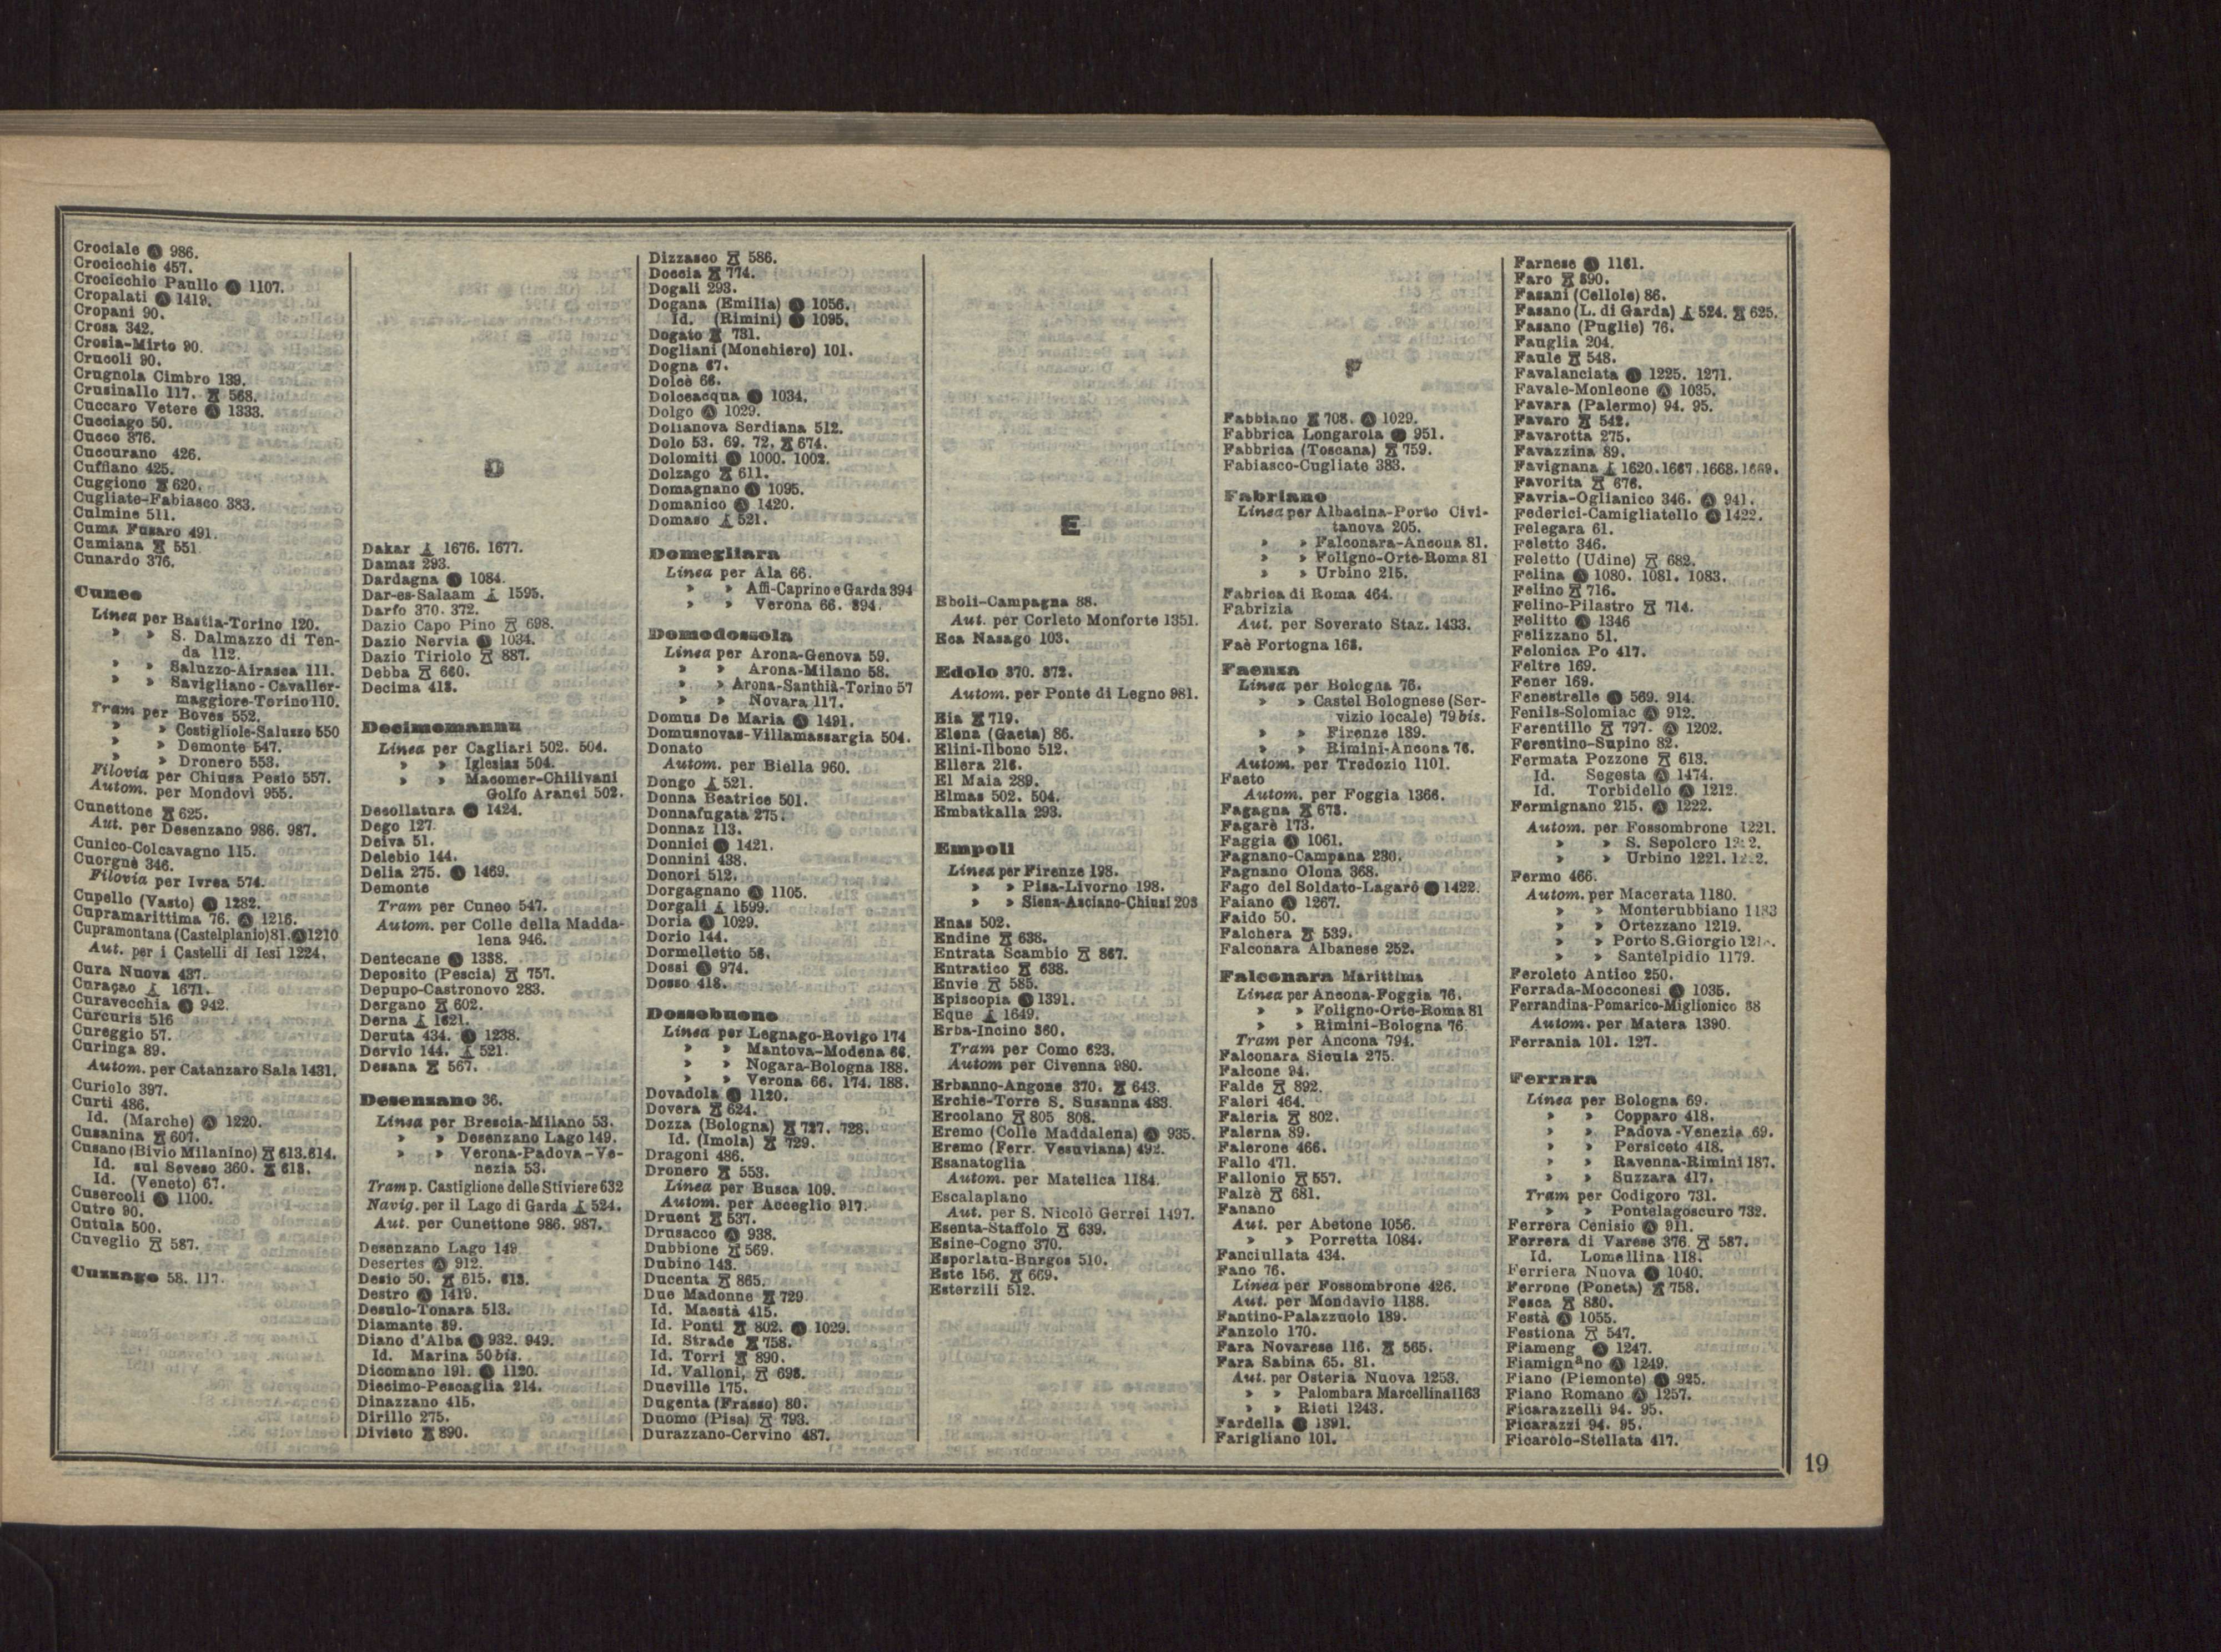 Crociale Ⓐ 986.
Crocicchie 457.
Crocicchio Paullo Ⓐ 1107.
Cropalati Ⓐ 1419.
Cropani 90.
Crosa 342.
Crosia-Mirto 90.
Crucoli 90.
Crugnola Cimbro 139.
Crusinallo 117. 568.
Cuccaro Vetere Ⓐ 1333.
Cucciago 50.
Cucco 376.
Cuccurano 426.
Cuffiano 425.
Cuggiono 620.
Cugliate-Fabiasco 383.
Culmine 511.
Cuma Fusaro 491.
Cumiana 551
Cunardo 376.
Cuneo
Linea per Bastia-Torino 120.
» » S. Dalmazzo di Ten-
da 112.
» » Saluzzo-Airasca 111.
» » Savigliano-Cavaller-
maggiore-Torino 110.
Tram per Boves 552.
» » Costigliole-Saluzzo 550
» » Demonte 547.
» » Dronero 553.
Filovia per Chiusa Pesio 557.
Autom. per Mondovì 955.
Cunettone 625.
Aut. per Desenzano 986. 987.
Cunico-Colcavagno 115.
Cuorgnè 346.
Filovia per Ivrea 574.
Cupello (Vasto) Ⓐ 1282.
Cupramarittima 76. Ⓐ 1216.
Cupramontana (Castelplanio) 81. Ⓐ 1210
Aut. per i Castelli di Iesi 1224.
Cura Nuova 437.
Curaçao 1671.
Curavecchia Ⓐ 942.
Curcuris 516
Cureggio 57.
Curinga 89.
Autom. per Catanzaro Sala 1431.
Curiolo 397.
Curti 486.
Id. (Marche) Ⓐ 1220.
Cusanina 607.
Cusano (Bivio Milanino) 613. 614.
Id. sul Seveso 360. 613.
Id. (Veneto) 67.
Cusercoli Ⓐ 1100.
Cutro 90.
Cutula 500.
Cuveglio 587.
Cuzzago 58. 117.
D
Dakar 1676. 1677.
Damas 293.
Dardagna Ⓐ 1084.
Dar-es-Salaam 1595.
Darfo 370. 372.
Dazio Capo Pino 698.
Dazio Nervia Ⓐ 1034.
Dazio Tiriolo 887.
Debba 660.
Decima 418.
Decimomannu
Linea per Cagliari 502. 504.
» » Iglesias 504.
» » Macomer-Chilivani
Golfo Aranci 502.
Decollatura Ⓐ 1424.
Dego 127.
Deiva 51.
Delebio 144.
Delia 275. Ⓐ 1469.
Demonte
Tram per Cuneo 547.
Autom. per Colle della Madda-
lena 946.
Dentecane Ⓐ 1338.
Deposito (Pescia) 757.
Depupo-Castronovo 283.
Dergano 602.
Derna 1621.
Deruta 434. Ⓐ 1238.
Dervio 144. 521.
Desana 567.
Desenzano 36.
Linea per Brescia-Milano 53.
» » Desenzano Lago 149.
» » Verona-Padova-Ve-
nezia 53.
Tram p. Castiglione delle Stiviere 632
Navig. per il Lago di Garda 524.
Aut. per Cunettone 986. 987.
Desenzano Lago 149
Desertes Ⓐ 912.
Desio 50. 615. 613.
Destro Ⓐ 1419.
Desulo-Tonara 513.
Diamante 89.
Diano d'Alba Ⓐ 932. 949.
Id. Marina 50 bis.
Dicomano 191. Ⓐ 1120.
Diecimo-Pescaglia 214.
Dinazzano 415.
Dirillo 275.
Divieto 890.
Dizzasco 586.
Doccia 774.
Dogali 293.
Dogana (Emilia) Ⓐ 1056.
Id. (Rimini) Ⓐ 1095.
Dogato 731.
Dogliani (Monchiero) 101.
Dogna 67.
Dolcè 66.
Dolceacqua Ⓐ 1034.
Dolgo Ⓐ 1029.
Dolianova Serdiana 512.
Dolo 53. 69. 72. 674.
Dolomiti Ⓐ 1000. 1002.
Dolzago 611.
Domagnano Ⓐ 1095.
Domanico Ⓐ 1420.
Domaso 521.
Domegliara
Linea per Ala 66.
» » Affi-Caprino e Garda 394
» » Verona 66. 394.
Domodossola
Linea per Arona-Genova 59.
» » Arona-Milano 58.
» » Arona-Santhià-Torino 57
» » Novara 117.
Domus De Maria Ⓐ 1491.
Domusnovas-Villamassargia 504.
Donato
Autom. per Biella 960.
Dongo 521.
Donna Beatrice 501.
Donnafugata 275.
Donnaz 113.
Donnici Ⓐ 1421.
Donnini 438.
Donori 512.
Dorgagnano Ⓐ 1105.
Dorgali 1599.
Doria Ⓐ 1029.
Dorio 144.
Dormelletto 58.
Dossi Ⓐ 974.
Dosso 418.
Dossobuono
Linea per Legnago-Rovigo 174
» » Mantova-Modena 66.
» » Nogara-Bologna 188.
» » Verona 66. 174. 188.
Dovadola Ⓐ 1120.
Dovera 624.
Dozza (Bologna) 727. 728.
Id. (Imola) 729.
Dragoni 486.
Dronero 553.
Linea per Busca 109.
Autom. per Acceglio 917.
Druent 537.
Drusacco Ⓐ 938.
Dubbione 569.
Dubino 143.
Ducenta 865.
Due Madonne 729
Id. Maestà 415.
Id. Ponti 802. Ⓐ 1029.
Id. Strade 758.
Id. Torri 890.
Id. Valloni, 698.
Dueville 175.
Dugenta (Frasso) 80.
Duomo (Pisa) 793.
Durazzano-Cervino 487.
E
Eboli-Campagna 88.
Aut. per Corleto Monforte 1351.
Eca Nasagò 103.
Edolo 370. 372.
Autom. per Ponte di Legno 981.
Eia 719.
Elena (Gaeta) 86.
Elini-Ilbono 512.
Ellera 216.
El Maia 289.
Elmas 502. 504.
Embatkalla 293.
Empoli
Linea per Firenze 198.
» » Pisa-Livorno 198.
» » Siena-Asciano-Chiusi 203
Enas 502.
Endine 638.
Entrata Scambio 867.
Entratico 638.
Envie 585.
Episcopia Ⓐ 1391.
Eque 1649.
Erba-Incino 360.
Tram per Como 623.
Autom per Civenna 980.
Erbanno-Angone 370. 643.
Erchie-Torre S. Susanna 483.
Ercolano 805 808.
Eremo (Colle Maddalena) Ⓐ 935.
Eremo (Ferr. Vesuviana) 492.
Esanatoglia
Autom. per Matelica 1184.
Escalaplano
Aut. per S. Nicolò Gerrei 1497.
Esenta-Staffolo 639.
Esine-Cogno 370.
Esporlatu-Burgos 510.
Este 156. 669.
Esterzili 512.
F
Fabbiano 708. Ⓐ 1029.
Fabbrica Longarola Ⓐ 951.
Fabbrica (Toscana) 759.
Fabiasco-Cugliate 383.
Fabriano
Linea per Albacina-Porto Civi-
tanova 205.
» » Falconara-Ancona 81.
» » Foligno-Orte-Roma 81
» » Urbino 215.
Fabrica di Roma 464.
Fabrizia
Aut. per Soverato Staz. 1433.
Faè Fortogna 168.
Faenza
Linea per Bologna 76.
» » Castel Bolognese (Ser-
vizio locale) 79 bis.
» » Firenze 189.
» » Rimini-Ancona 76.
Autom. per Tredozio 1101.
Faeto
Autom. per Foggia 1366.
Fagagna 678.
Fagarè 173.
Faggia Ⓐ 1061.
Fagnano-Campana 230.
Fagnano Olona 368.
Fago del Soldato-Lagarò Ⓐ 1422.
Faiano Ⓐ 1267.
Faido 50.
Falchera 539.
Falconara Albanese 252.
Falconara Marittima
Linea per Ancona-Foggia 76.
» » Foligno-Orte-Roma 81
» » Rimini-Bologna 76.
Tram per Ancona 794.
Falconara Sicula 275.
Falcone 94.
Falde 892.
Faleri 464.
Faleria 802.
Falerna 89.
Falerone 466.
Fallo 471.
Fallonio 557.
Falzè 681.
Fanano
Aut. per Abetone 1056.
» » Porretta 1084.
Fanciullata 434.
Fano 76.
Linea per Fossombrone 426.
Aut. per Mondavio 1188.
Fantino-Palazzuolo 189.
Fanzolo 170.
Fara Novarese 116. 565.
Fara Sabina 65. 81.
Aut. per Osteria Nuova 1253.
» » Palombara Marcellina 1163
» » Rieti 1243.
Fardella Ⓐ 1391.
Farigliano 101.
Farnese Ⓐ 1161.
Faro 890.
Fasani (Cellole) 86.
Fasano (L. di Garda) 524. 625.
Fasano (Puglie) 76.
Fauglia 204.
Faule 548.
Favalanciata Ⓐ 1225. 1271.
Favale-Monleone Ⓐ 1035.
Favara (Palermo) 94. 95.
Favaro 542.
Favarotta 275.
Favazzina 89.
Favignana 1620. 1667. 1668. 1669.
Favorita 676.
Favria-Oglianico 346. Ⓐ 941.
Federici-Camigliatello Ⓐ 1422.
Felegara 61.
Feletto 346.
Feletto (Udine) 682.
Felina Ⓐ 1080. 1081. 1083.
Felino 716.
Felino-Pilastro 714.
Felitto Ⓐ 1346
Felizzano 51.
Felonica Po 417.
Feltre 169.
Fener 169.
Fenestrelle Ⓐ 569. 914.
Fenils-Solomiac Ⓐ 912.
Ferentillo 797. Ⓐ 1202.
Ferentino-Supino 82.
Fermata Pozzone 613.
Id. Segesta Ⓐ 1474.
Id. Torbidello Ⓐ 1212.
Fermignano 215. Ⓐ 1222.
Autom. per Fossombrone 1221.
» » S. Sepolcro
» » Urbino 1221.
Fermo 466.
Autom. per Macerata 1180.
» » Monterubbiano 1183
» » Ortezzano 1219.
» » Porto S. Giorgio
» » Santelpidio 1179.
Feroleto Antico 250.
Ferrada-Mocconesi Ⓐ 1035.
Ferrandina-Pomarico-Miglionico 88
Autom. per Matera 1390.
Ferrania 101. 127.
Ferrara
Linea per Bologna 69.
» » Copparo 418.
» » Padova-Venezia 69.
» » Persiceto 418.
» » Ravenna-Rimini 187.
» » Suzzara 417.
Tram per Codigoro 731.
» » Pontelagoscuro 732.
Ferrera Cenisio Ⓐ 911.
Ferrera di Varese 376. 587.
Id. Lomellina 118.
Ferriera Nuova Ⓐ 1040.
Ferrone (Poneta) 758.
Fesca 880.
Festà Ⓐ 1055.
Festiona 547.
Fiameng Ⓐ 1247.
Fiamignano Ⓐ 1249.
Fiano (Piemonte) Ⓐ 925.
Fiano Romano Ⓐ 1257.
Ficarazzelli 94. 95.
Ficarazzi 94. 95.
Ficarolo-Stellata 417.
19